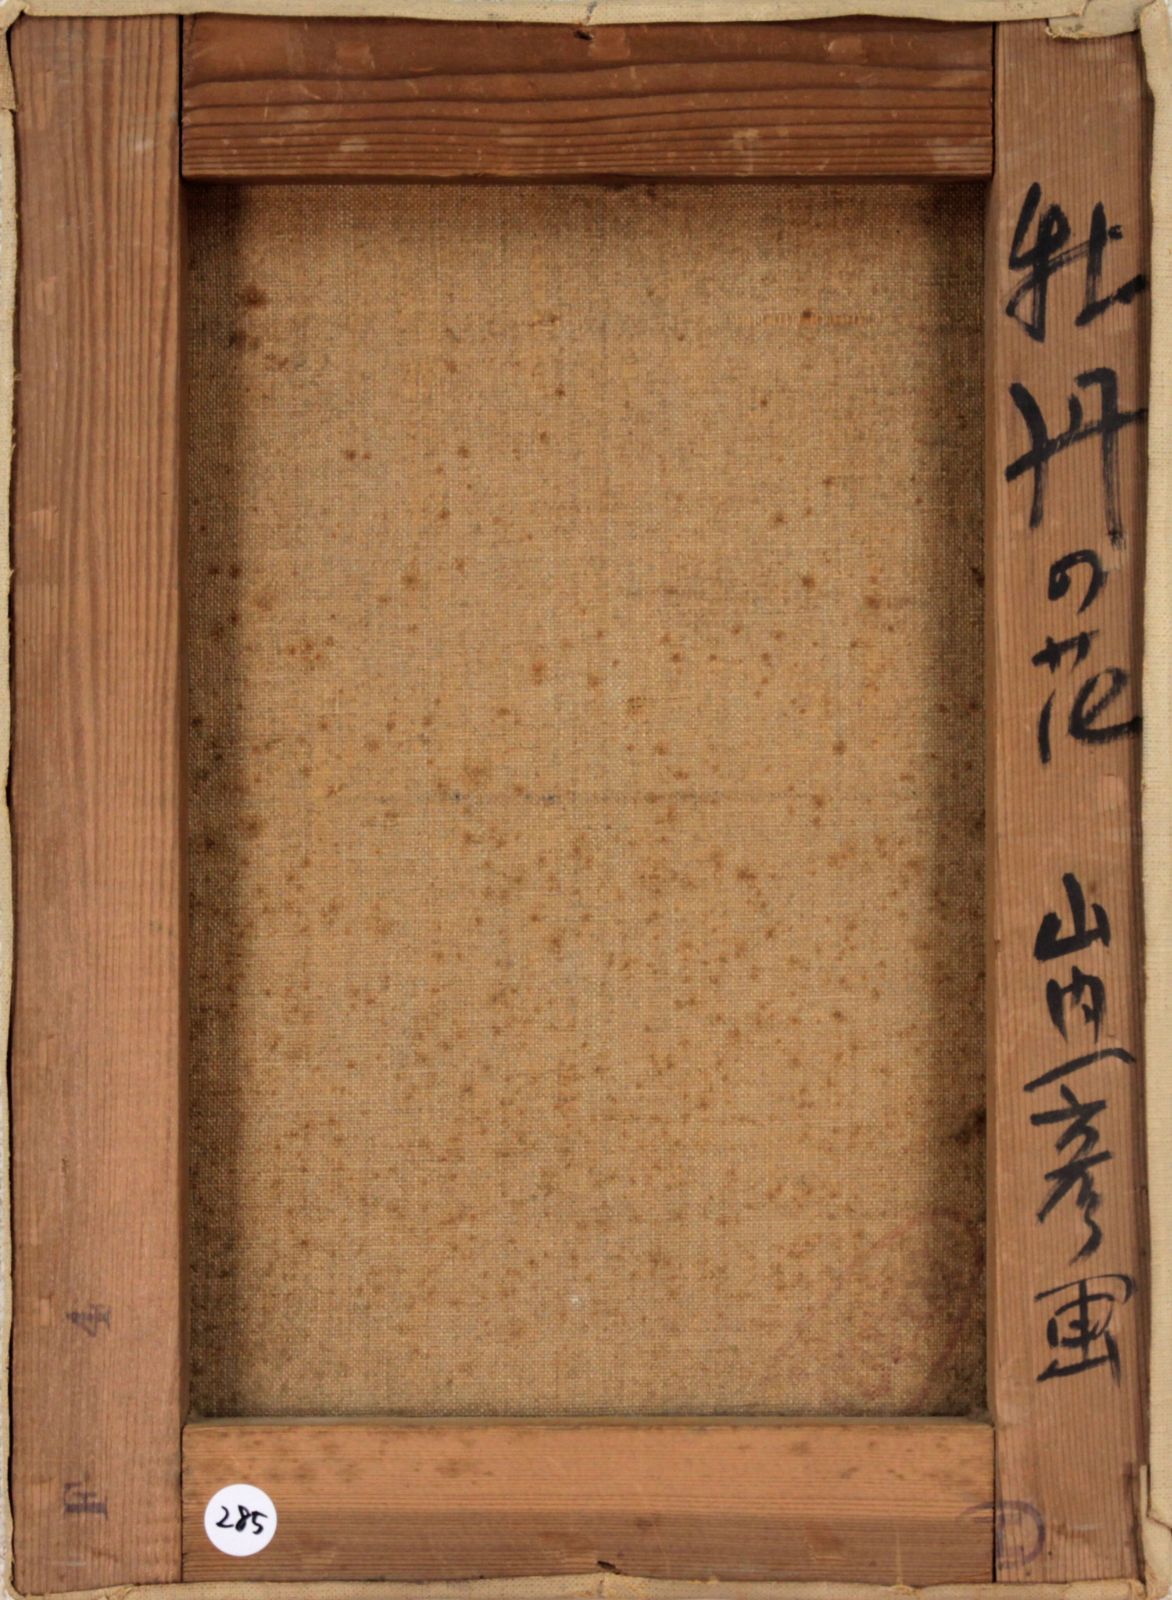 牡丹の花 山内一彦画
285